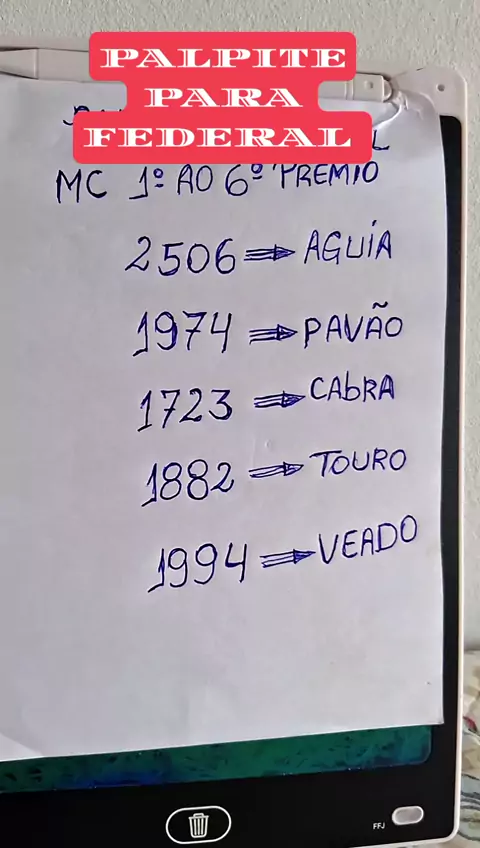 PALPITE
PARA
FEDERAL
MC 1º AO 6º PREMIO
2506 ⇒ AGUÍA
1974 ⇒ PAVÃO
1723 ⇒ CAbRA
1882 ⇒ TOURO
1994 ⇒ VEADO
FFJ